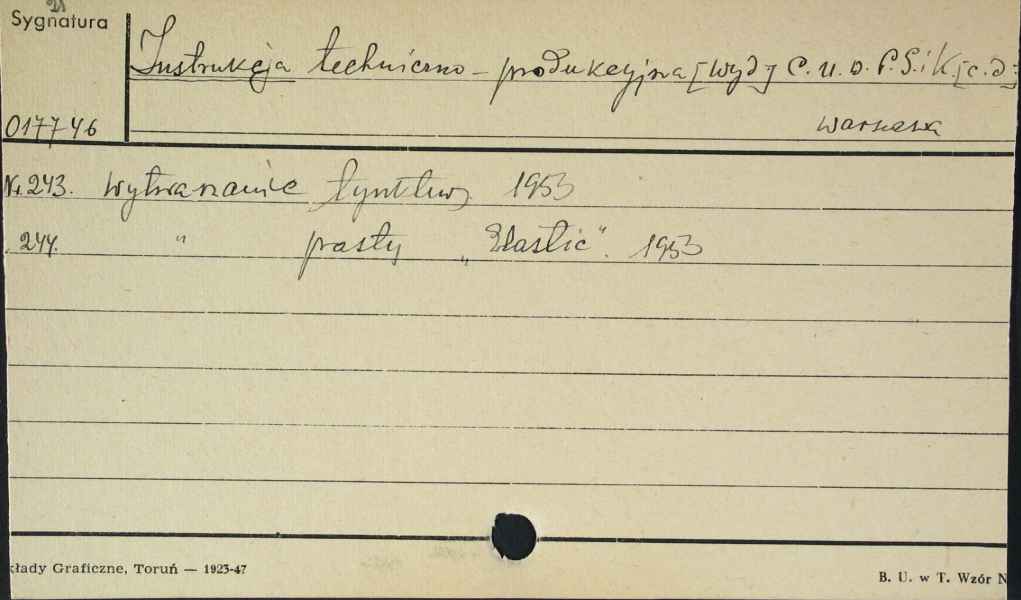 Sygnatura
Instrukcja techniczno-produkcyjna [Wyd] C.U.D.P.S.i K. [c.d.]
017746
Warszawa
Nr. 243. Wytwarzanie 1953
244. " pasty "Elastic". 1953
kłady Graficzne, Toruń — 1923-47
B. U. w T. Wzór N